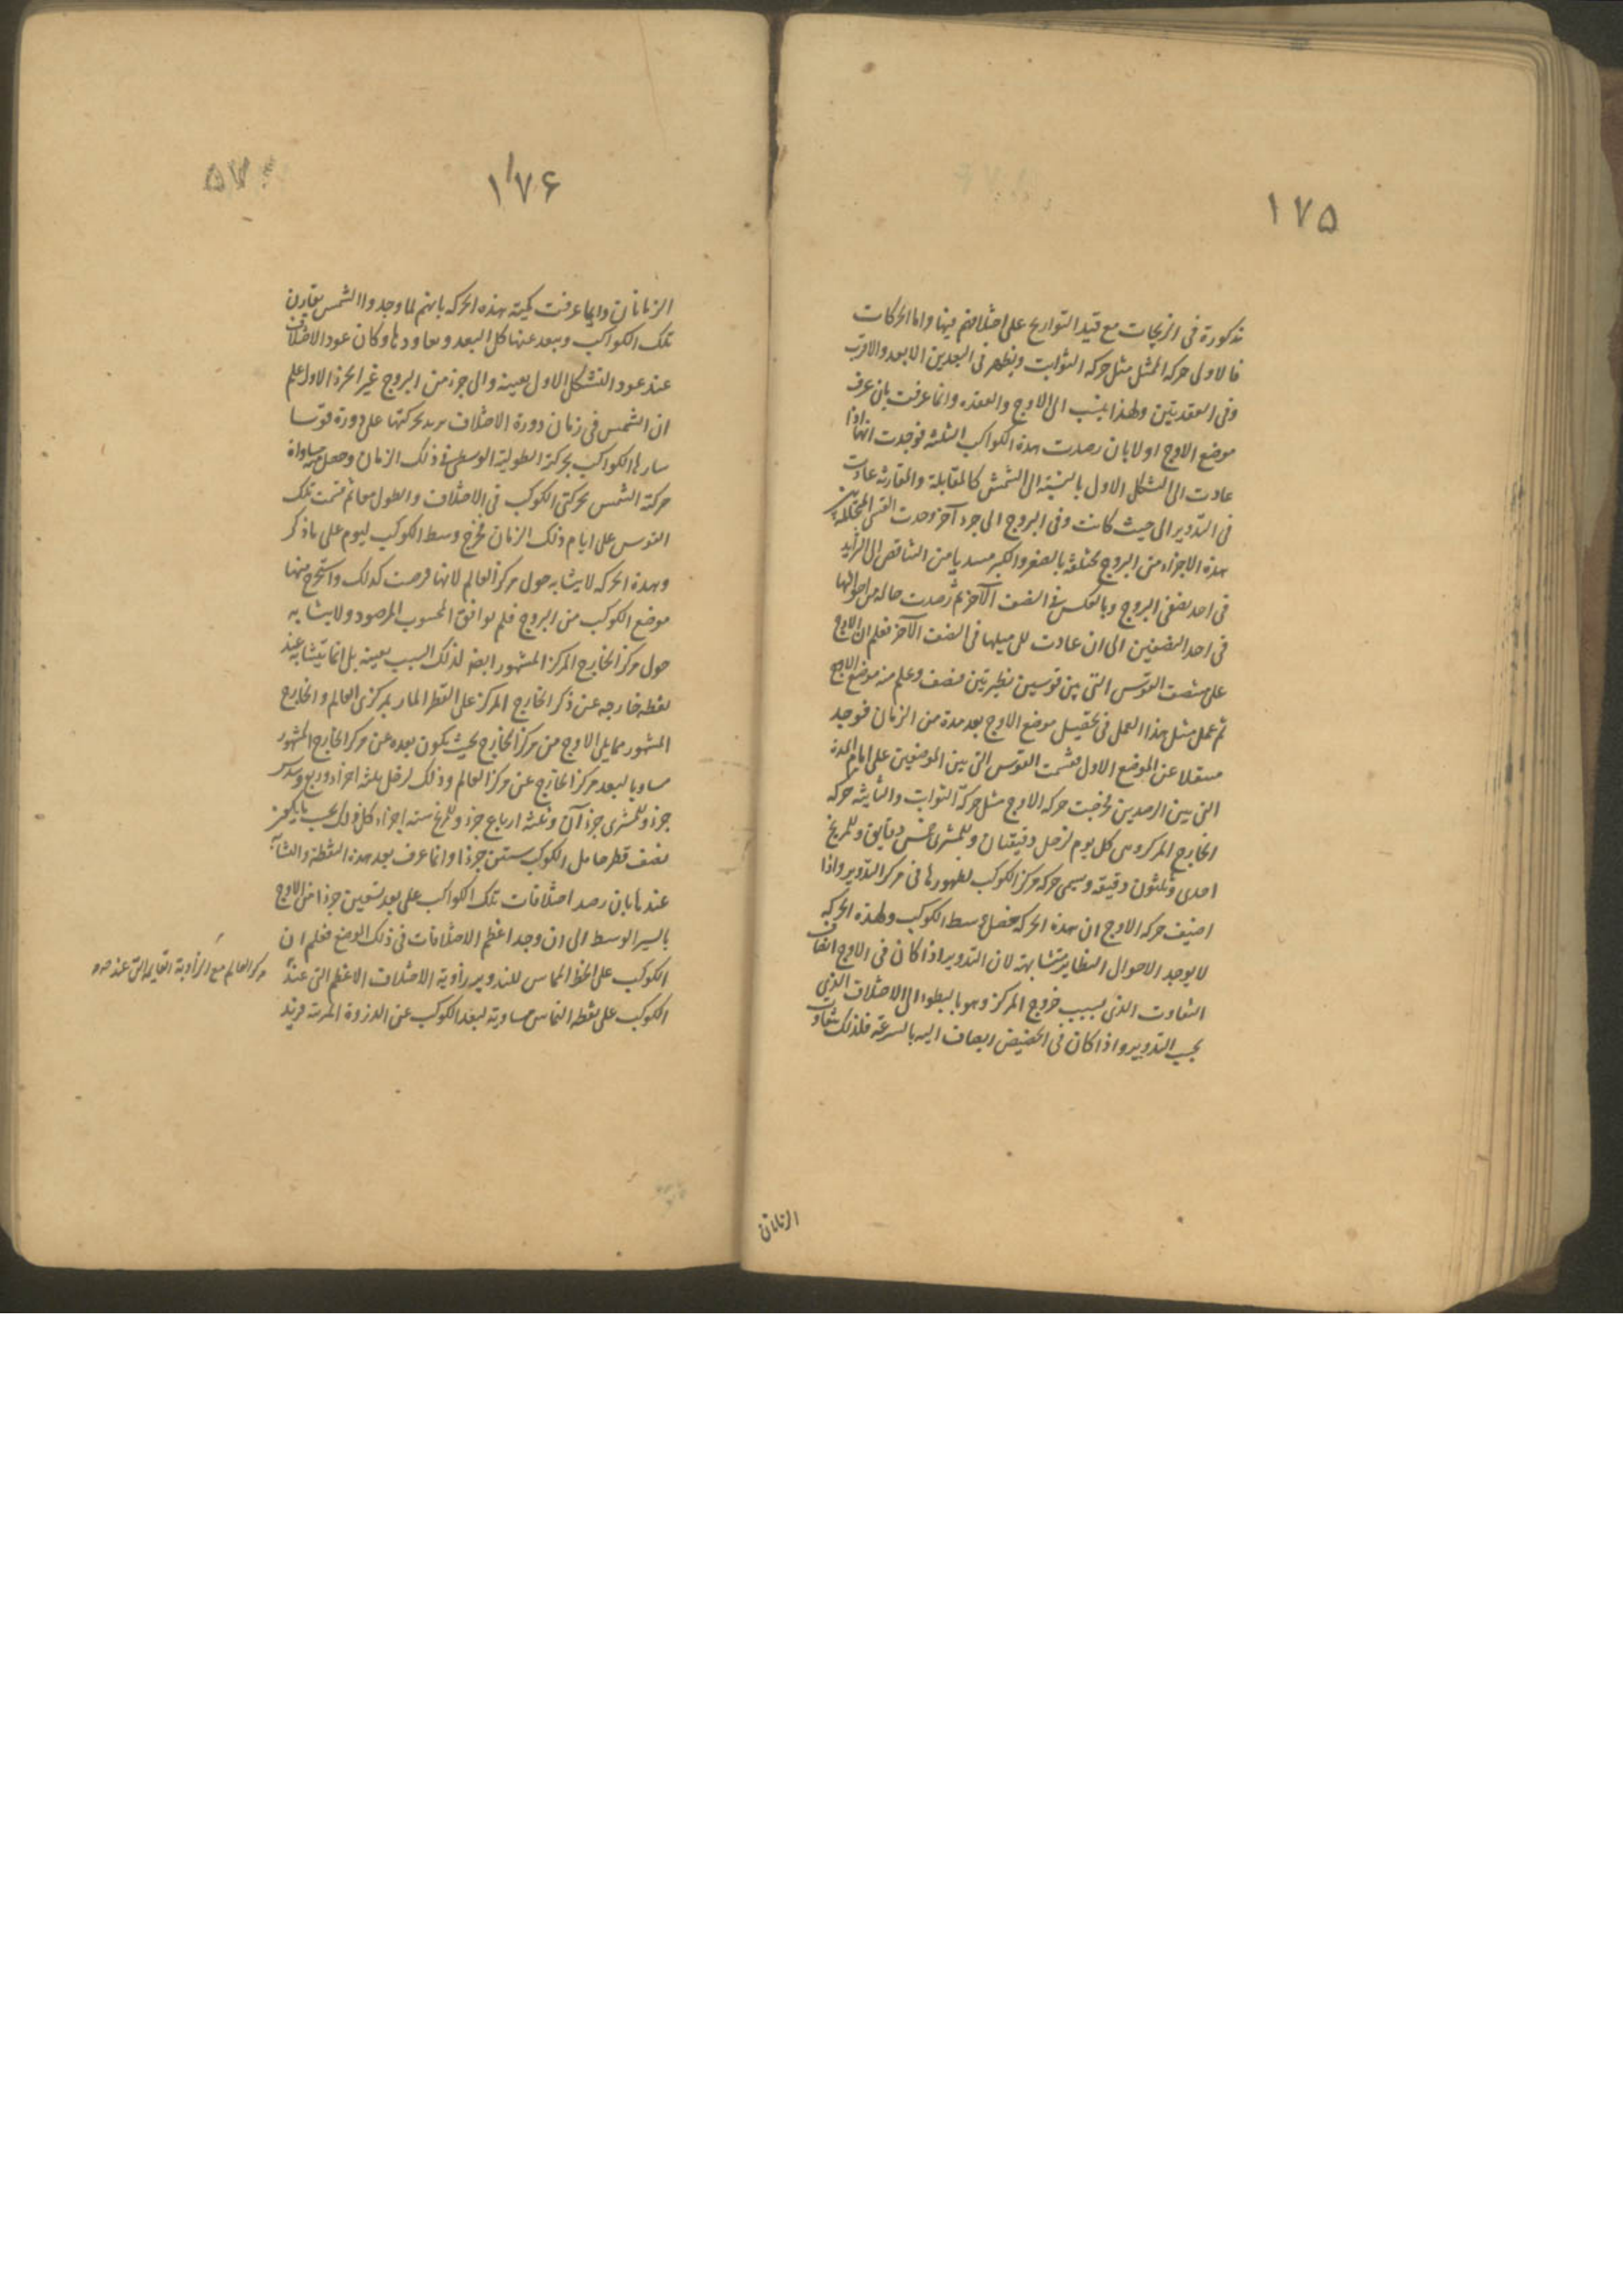 ١٧٥
مذكورة فى الزيجات مع قيد التواريخ على اختلافهم فيها واما الحركات
فالاولى حركة الممثل مثل حركة الثوابت ويظهر فى البعدين الابعد والاقرب
وفى العقدتين ولهذا ينسب الى الاوج والعقدة وانما عرفت بان عرف
موضع الاوج اولا بان رصدت هذه الكواكب الثلثة فوجدت انها اذا
عادت الى الشكل الاول بالنسبة الى الشمس كالمقابلة والمقارنة عادت
فى التدوير الى حيث كانت وفى البروج الى جزء آخر وجدت القسى المتخللة بين
هذه الاجزاء من البروج مختلفة بالصغر والكبر من التناقص الى التزايد
فى احد نصفى البروج وبالعكس فى النصف الآخر ثم رصدت حالة من احوالها
فى احد النصفين الى ان عادت الى مثلها فى النصف الآخر فعلم ان الاوج
على منتصف القوس التى بين قوسين نظيرتين فنصف وعلم منه موضع الاوج
ثم عمل مثل هذا العمل فى تحصيل موضع الاوج بعد مدة من الزمان فوجد
منتقلا عن الموضع الاول فقسمت القوس التى بين الموضعين على ايام المدة
التى بين الرصدين فخرجت حركة الاوج مثل حركة الثوابت والثانية حركة
الخارج المركز وهى كل يوم لزحل دقيقتان وللمشترى خمس دقايق وللمريخ
احدى وثلثون دقيقة وسمى حركة مركز الكوكب لظهورها فى مركز التدوير واذا
اضيف حركة الاوج الى هذه الحركة حصل وسط الكوكب ولهذه الحركة
لا يوجد الاحوال النظاير متشابهة لان التدوير اذا كان فى الاوج انضاف
التفاوت الذى بسبب خروج المركز وهو بالبطؤ الى الاختلاف الذى
بحسب التدوير واذا كان فى الحضيض انضاف اليه بالسرعة فلذلك تفاوت
الزمانان
١٧۶
الزمانان وانما عرفت كمية هذه الحركة بانهم لما وجدوا الشمس يقارن
تلك الكواكب ويبعد عنها كل البعد ويعاودها وكان عود الاختلاف
عند عود التشكل الاول بعينه والى جزء من البروج غير الجزء الاول علم
ان الشمس فى زمان دورة الاختلاف يزيد بحركتها على دورة قوسا
سارها الكواكب بحركة الطولية الوسطى فى ذلك الزمان وحصل منه مساواة
حركة الشمس بحركتى الكوكب فى الاختلاف والطول معا ثم قسمت تلك
القوس على ايام ذلك الزمان فخرج وسط الكوكب ليوم على ما ذكر
وهذه الحركة لا يتشابه حول مركز العالم لانها فرضت كذلك واستخرج منها
موضع الكوكب من البروج فلم يوافق المحسوب المرصود ولا يتشابه
حول مركز الخارج المركز المشهور ايضا لذلك السبب بعينه بل انما يتشابه عند
نقطة خارجة عن ذكر الخارج المركز على القطر المار بمركزى العالم والخارج
المشهور مما يلى الاوج من مركز الخارج بحيث يكون بعده عن مركز الخارج المشهور
مساويا لبعد مركز الخارج عن مركز العالم وذلك لزحل ثلثة اجزاء وربع وسدس
جزء وللمشترى جزءآن وثلثة ارباع جزء وللمريخ ستة اجزاء كل ذلك بحسب ما يكون
نصف قطر حامل الكوكب ستين جزءا وانما عرف بعد هذه النقطة والتشابه
عندها بان رصد اختلافات تلك الكواكب على بعد تسعين جزءا من الاوج
بالسير الوسط الى ان وجد اعظم الاختلافات فى ذلك الوضع فعلم ان
الكوكب على الخط المماس للتدوير وزاوية الاختلاف الاعظم التى عند
مركز العالم مع الزاوية القايمة التى عنده
الكوكب على نقطة التماس مساوية لبعد الكوكب عن الذروة المرئية